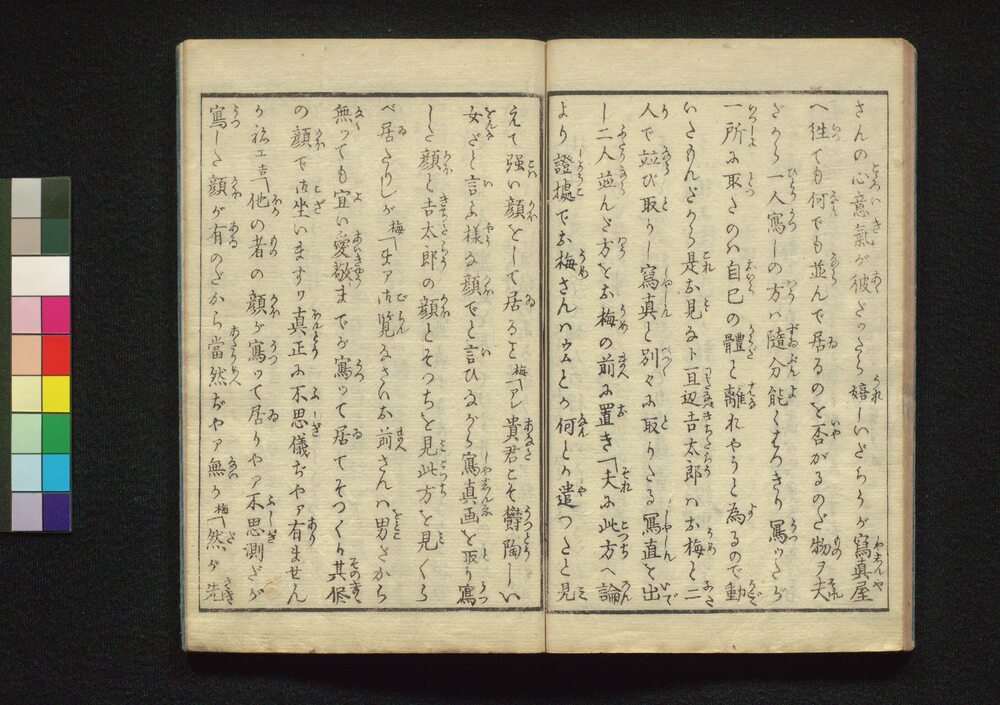 さんの心意氣が彼ださうだら嬉しいだらうが寫眞屋
へ徃ても何でも並んで居るのを否がるのだ物ヲ夫
だから一人寫しの方ハ隨分能くはつきり寫ツたが
一所に取たのハ自己の體を離れやうと為るので動
いたもんだから是お見なト田辺吉太郎ハお梅と二
人で並び取りし寫真と別々に取りたる寫真を出
し二人並んだ方をお梅の前に置き「夫に此方へ論
より證據でお梅さんハウムとか何とか遣つたと見
えて强い顔をして居ると梅「アレ貴君こそ欝陶しい
女だと言ふ樣な顔でと言ひながら寫真画を取り寫
した顔と吉太郎の顔とそつちを見此方を見くら
べ居たりしが梅「まア御覧なさいお前さんハ男だから
無ッても宜い愛敬までが寫ッて居てそつくり其侭
の顔で御坐いますワ真正に不思儀ぢやア有ません
か祐エ吉「他の者の顔が寫ッて居りやア不思測だが
寫した顔が有のだから當然ぢやア無か梅「然ダ先